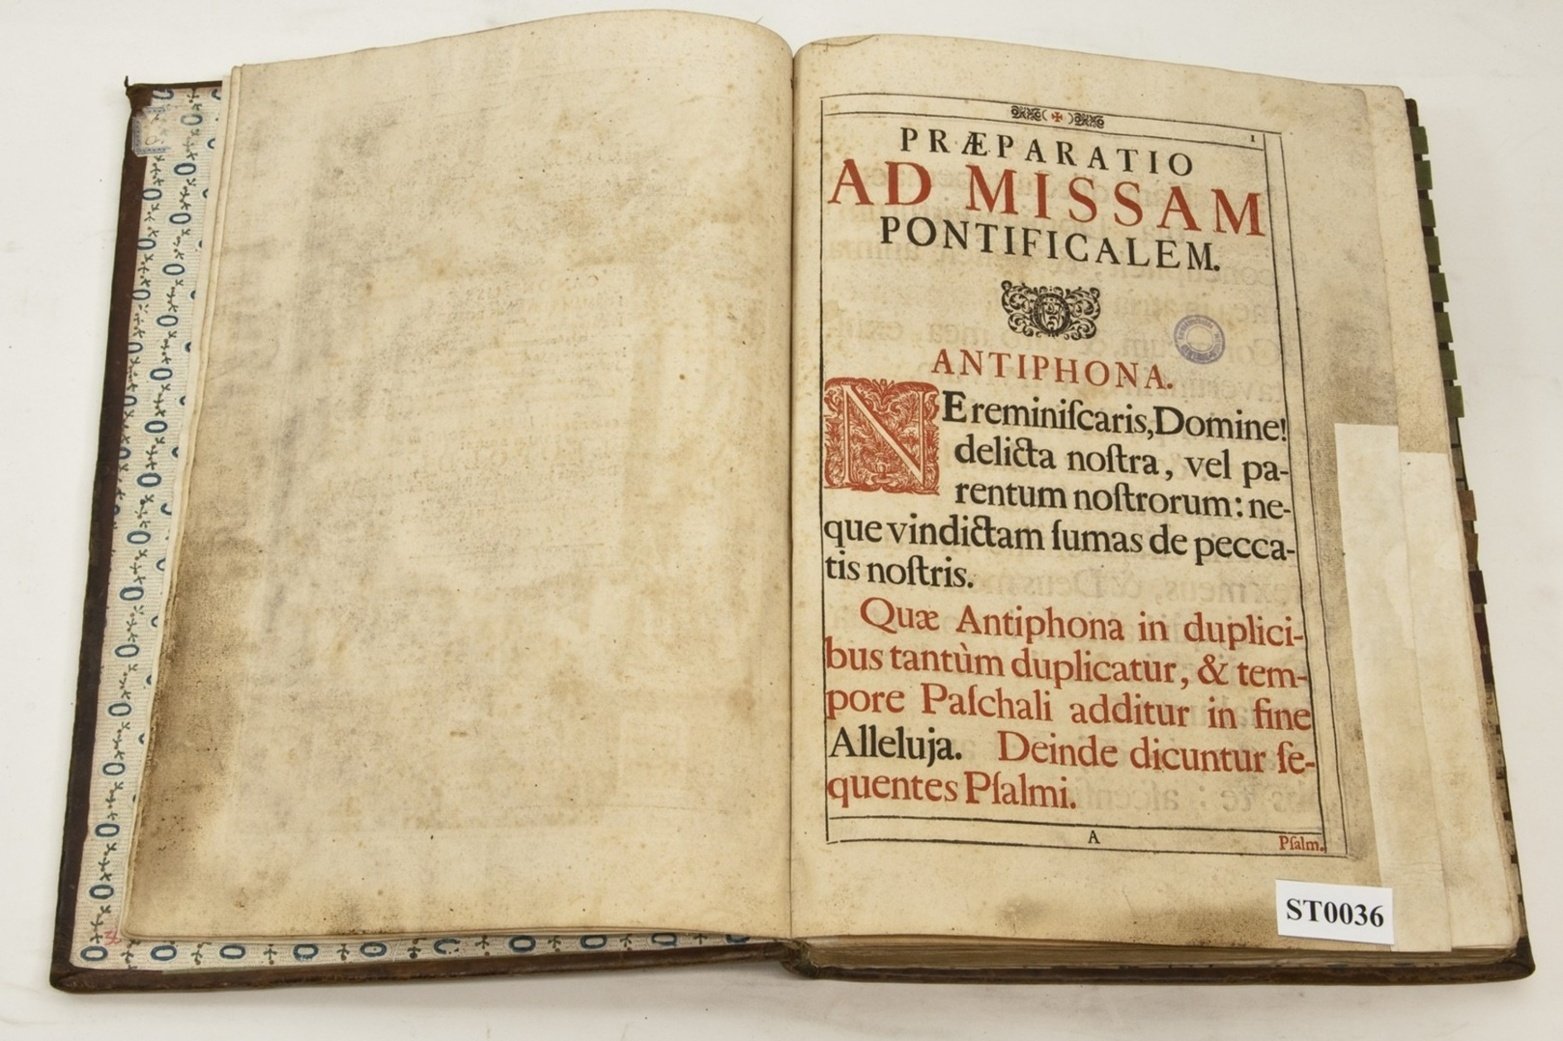 1
PRÆPARATIO
AD MISSAM
PONTIFICALEM.
ANTIPHONA.
NE reminiſcaris, Domine!
delicta noſtra, vel pa-
rentum noſtrorum: ne-
que vindictam ſumas de pecca-
tis noſtris.
Quæ Antiphona in duplici-
bus tantùm duplicatur, & tem-
pore Paſchali additur in fine
Alleluja. Deinde dicuntur ſe-
quentes Pſalmi.
A
Pſalm.
ST0036